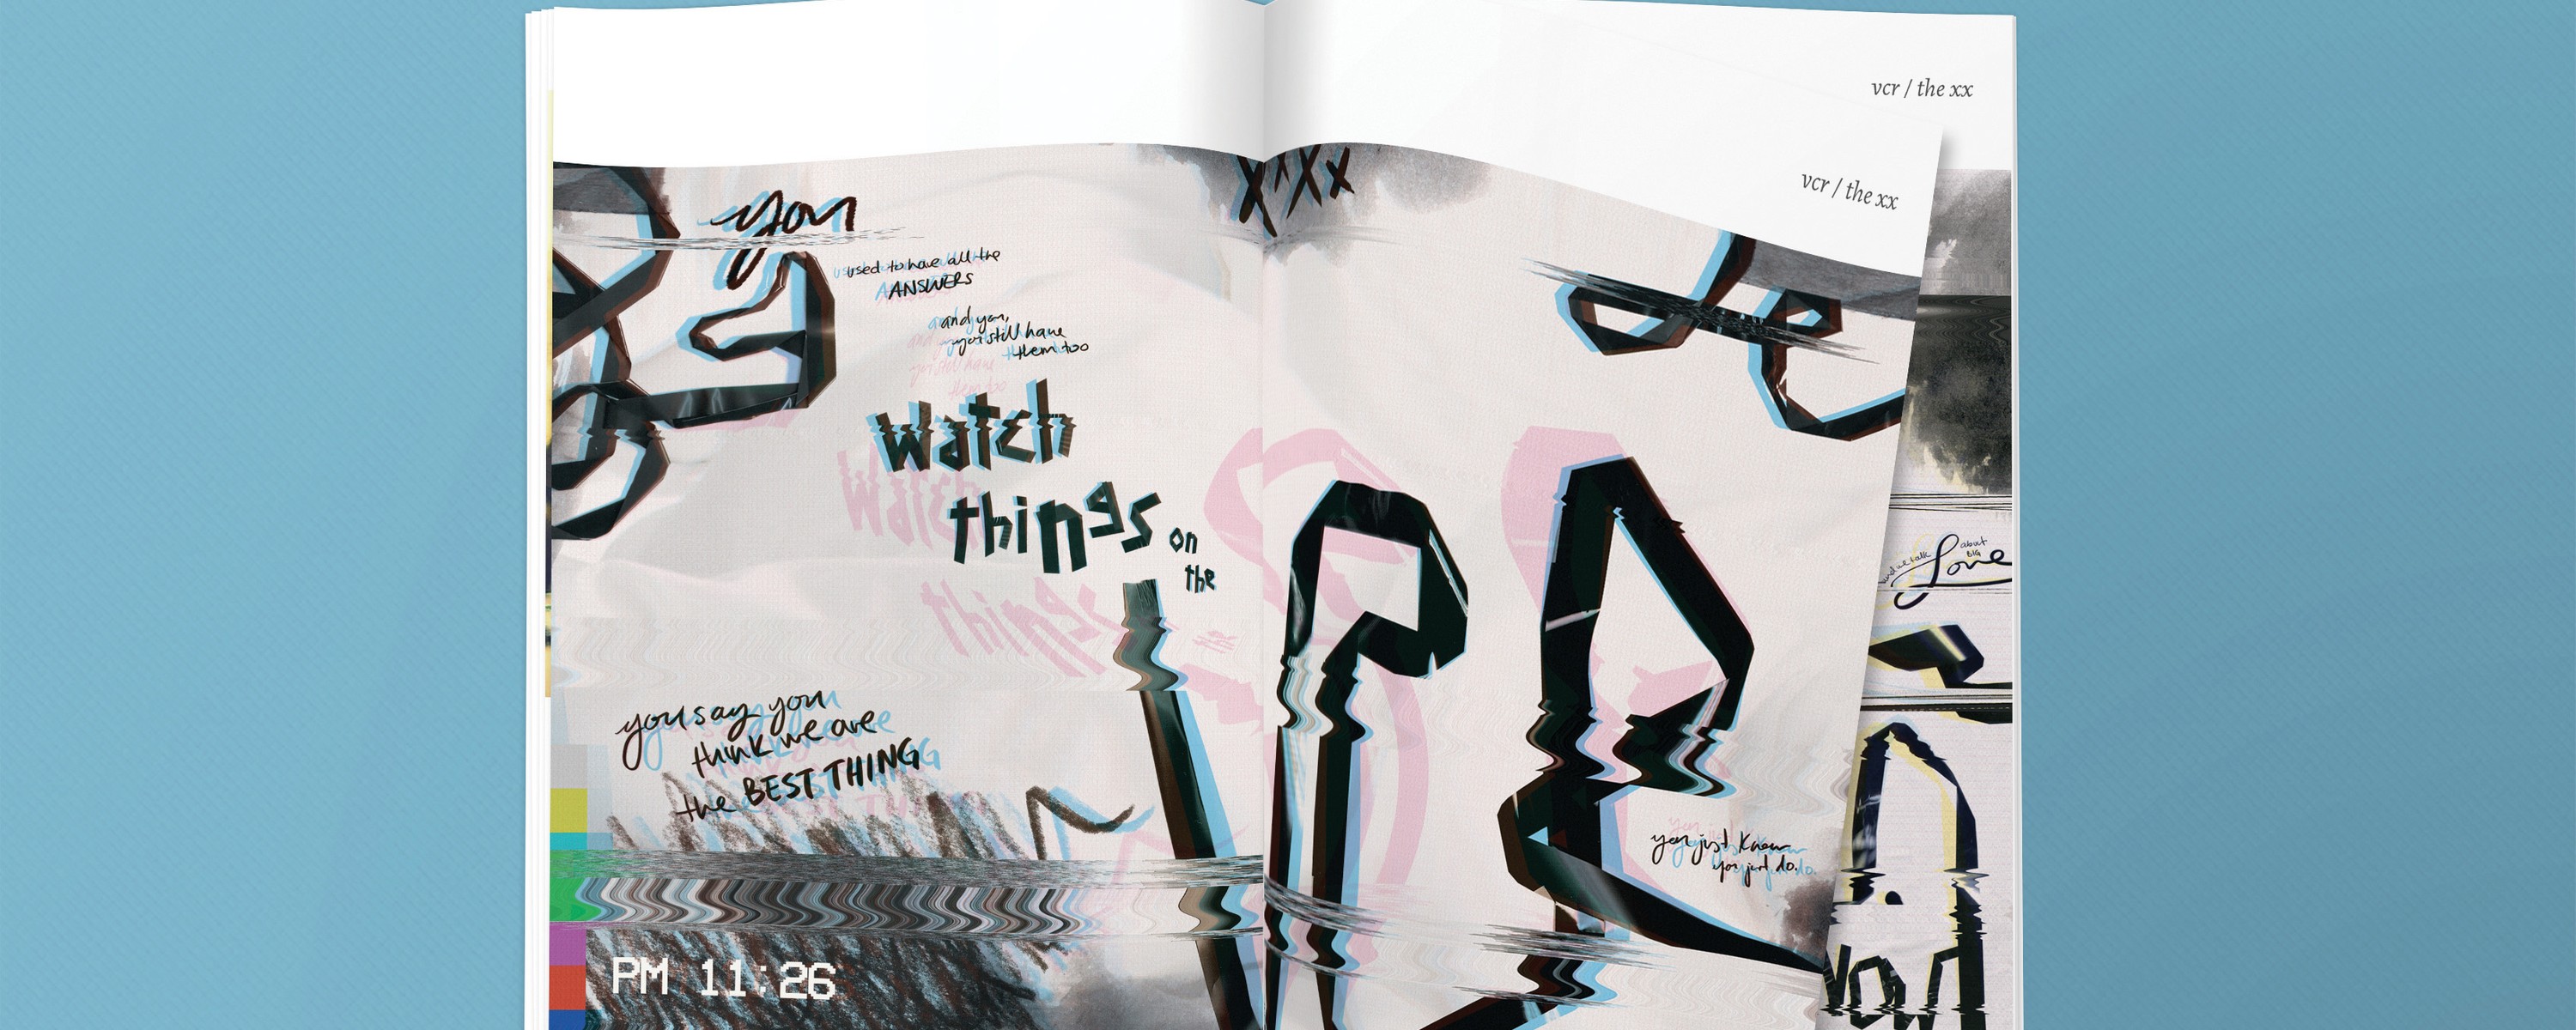 vcr / the xx
vcr / the xx
xxxx
you
used to have all the
ANSWERS
and you,
you still have
them too
Watch
things on
the
VCR
you say you
think we are
the BEST THING
you just know
you just do.
and we talk about
BIG
Love
PM 11:26